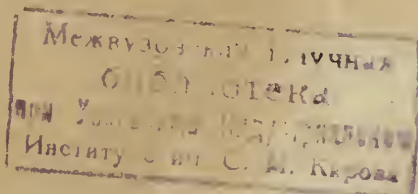 Межвузовская научная
библиотека
при
Институте им. С. М. Кирова